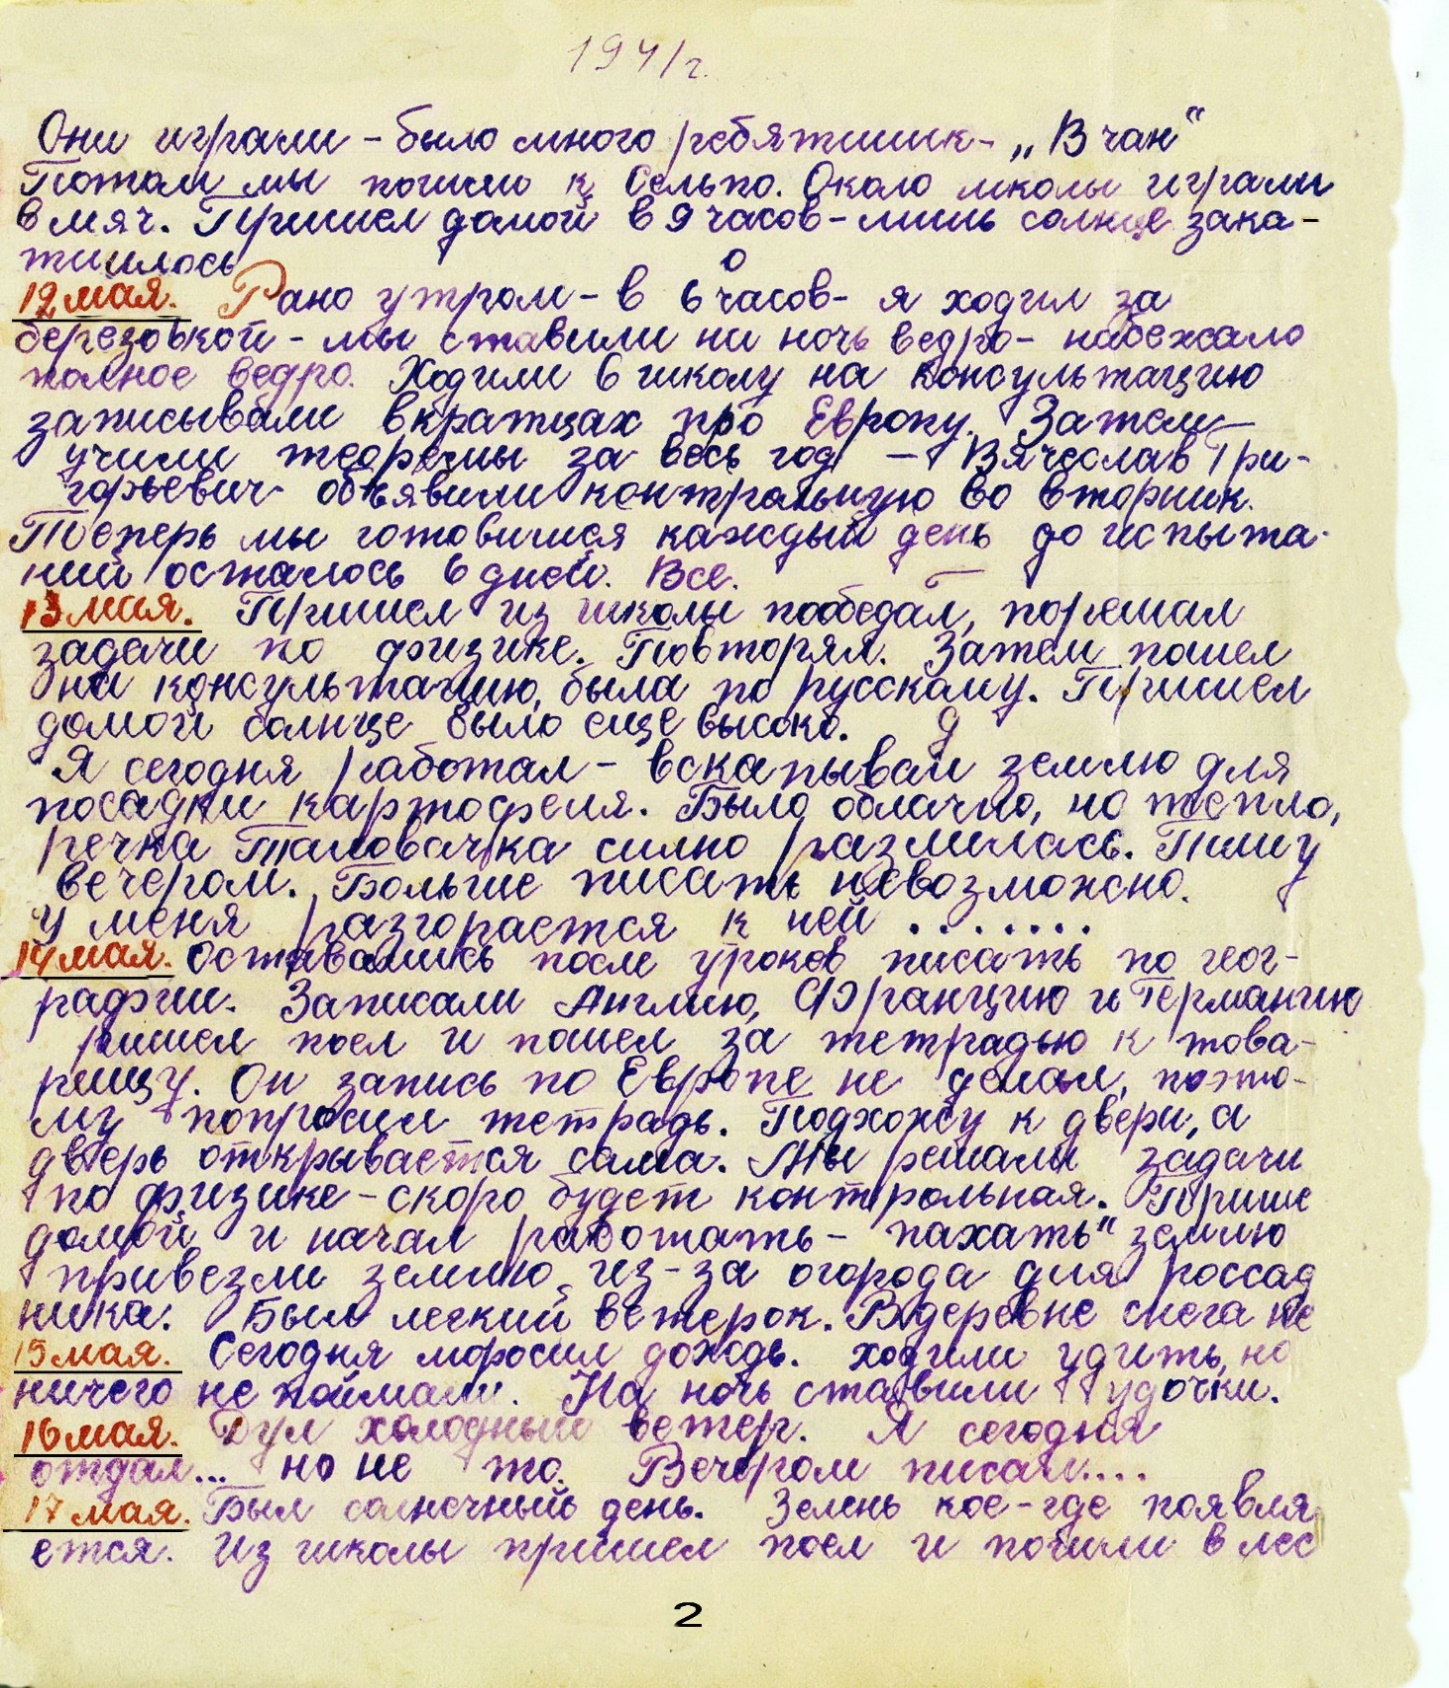 1941г.
Они играли - было много ребятишик - „В чан"
Потом мы пошли к Сельпо. Около школы играли
в мяч. Пришел домой в 9 часов - лишь солнце зака-
тилось
12 мая. Рано утром - в 6 часов - я ходил за
березовкой - мы ставили на ночь ведро - набежало
полное ведро. Ходили в школу на консультацию
записывали вкратцах про Европу. Затем -
учили теоремы за весь год - Вячеслав Гри-
горьевич объявили контрольную во вторник.
Теперь мы готовимся каждый день до испыта-
ний осталось 6 дней. Все.
13 мая. Пришел из школы пообедал, порешал
задачи по физике. Повторял. Затем пошел
на консультацию, была по русскому. Пришел
домой солнце было еще высоко.
Я сегодня работал - вскапывал землю для
посадки картофеля. Было облачно, но тепло,
речка Таловачка силно разлилась. Пишу
вечером. Больше писать невозможно.
У меня разгорается к ней .......
14 мая. Оставались после уроков писать по геог-
рафии. Записали Англию, Францию и Германию
ришел поел и пошел за тетрадью к това-
рищу. Он запись по Европе не делал, поэто-
му попросил тетрадь. Подхожу к двери, а
дверь открывается сама. Мы решали задачи
по физике - скоро будет контрольная. Прише
домой и начал работать - пахать" землю
привезли землю из-за огорода для россад
ника. Был легкий ветерок. В деревне снега не
15 мая. Сегодня моросил дождь. ходили удить, но
ничего не поймали. На ночь ставили удочки.
16 мая. Дул холодный ветер. Я сегодня
отдал... но не то. Вечером писал....
17 мая. Был солнечный день. Зелень кое-где появля
ется. Из школы пришел поел и пошли в лес
2